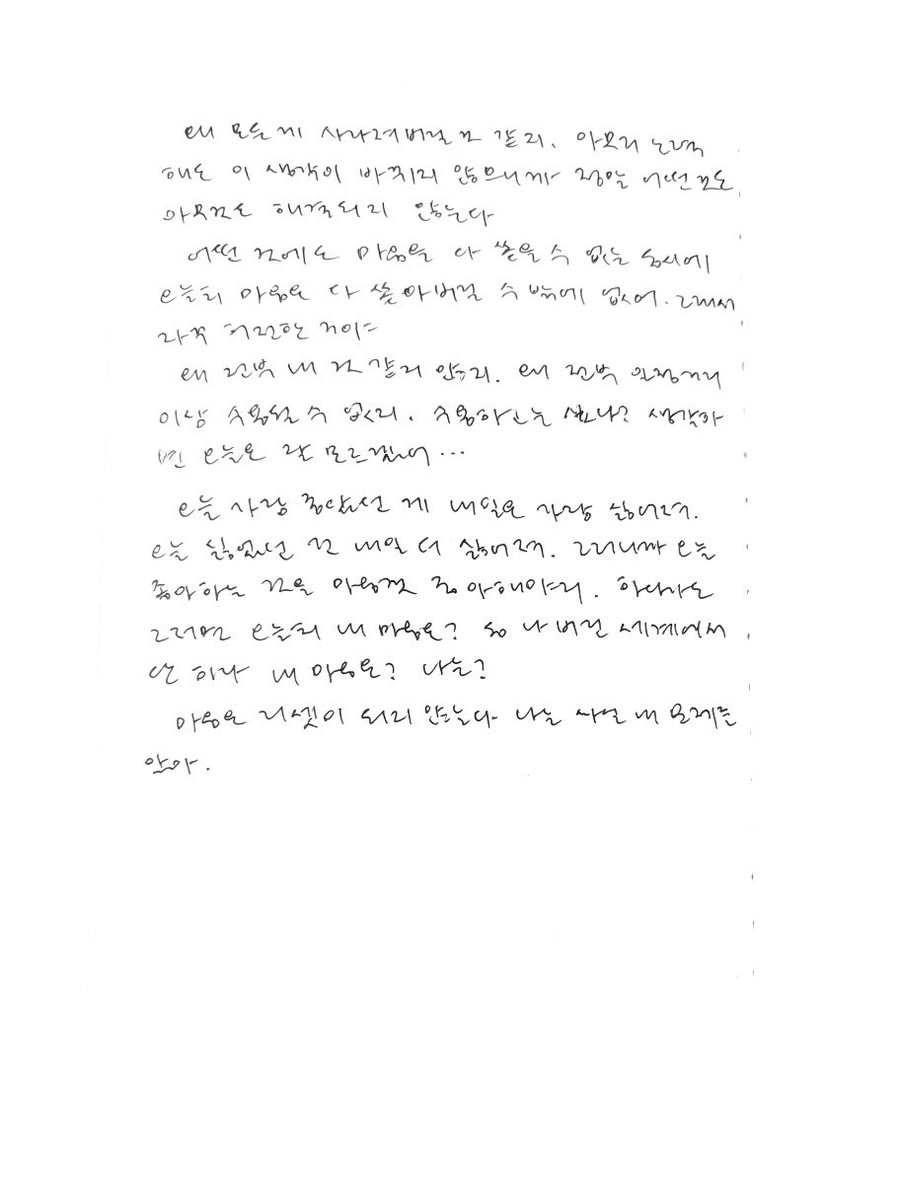 왜 모든 게 사라져버릴 것 같지. 아무리 노력
해도 이 생각이 바뀌지 않으니까 정말 어떤 것도
아무것도 해결되지 않는다
어떤 것에도 마음을 다 쏟을 수 없는 동시에
오늘의 마음은 다 쏟아버릴 수 밖에 없어. 그래서
자꾸 허전한 거야
왜 전부 내 것 같지 않지. 왜 전부 일정거리
이상 수용될 수 없지. 수용하고는 싶나? 생각하
면 오늘은 잘 모르겠어...
오늘 가장 좋았던 게 내일은 가장 싫어져.
오늘 싫었던 건 내일 더 싫어져. 그러니까 오늘
좋아하는 것을 마음껏 좋아해야지. 하다가도
그러면 오늘의 내 마음은? 동 나 버린 세계에서
단 하나 내 마음은? 나는?
마음은 리셋이 되지 않는다 나는 사실 내 문제를
알아.